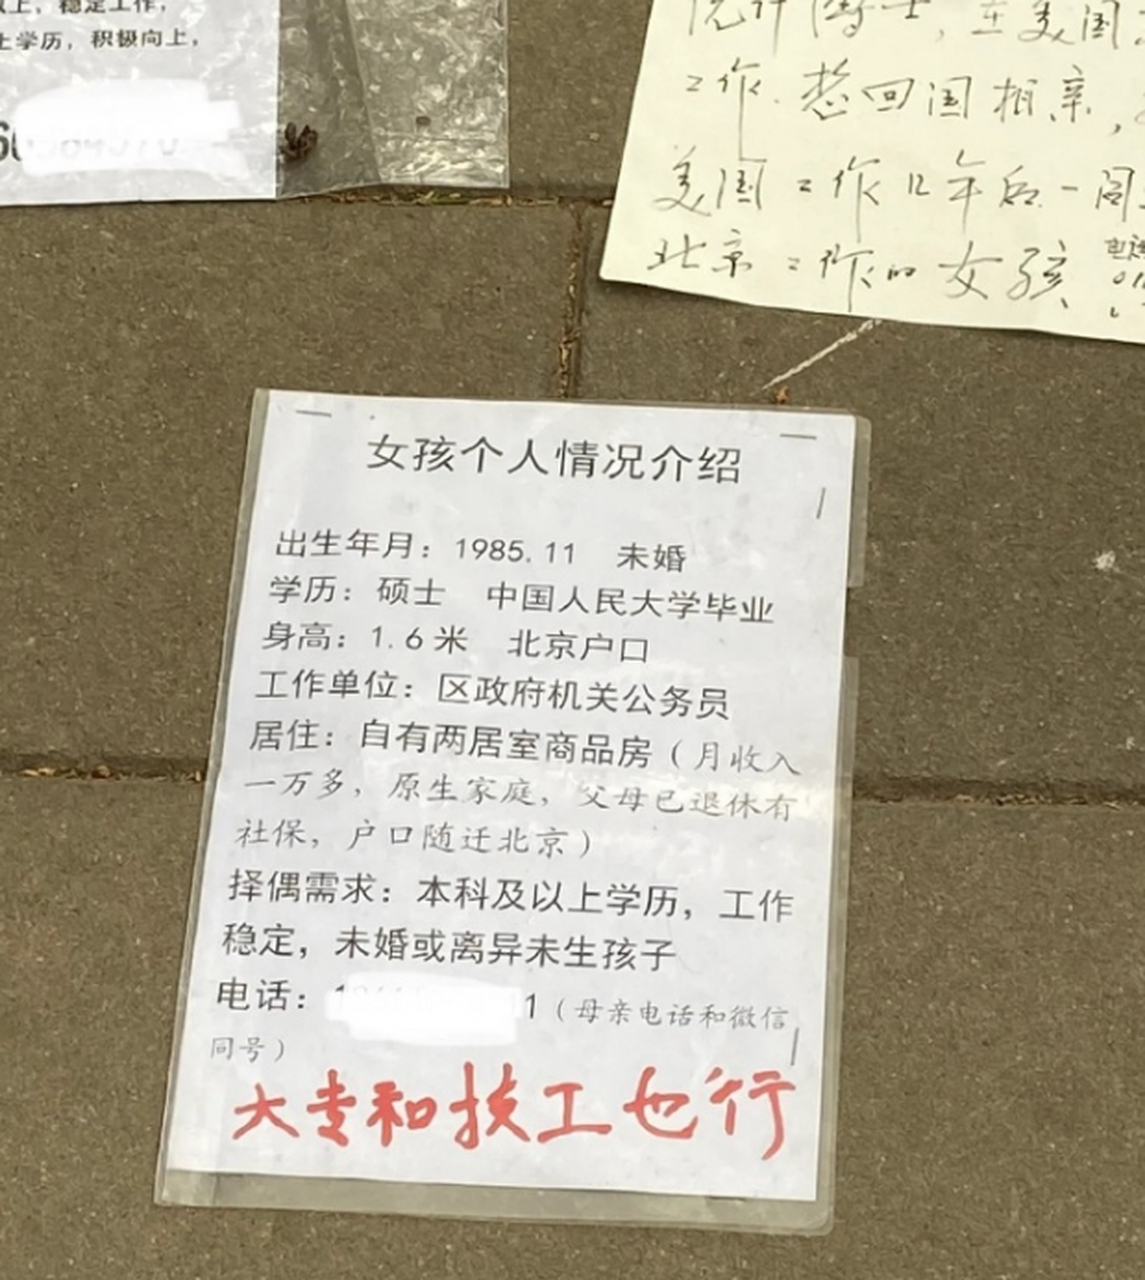 以上，稳定工作，
上学历，积极向上，
统计博士，在美国
工作．想回国相亲，
美国工作几年后一同
北京工作的女孩
电话
女孩个人情况介绍
出生年月：1985.11 未婚
学历：硕士 中国人民大学毕业
身高：1.6米 北京户口
工作单位：区政府机关公务员
居住：自有两居室商品房（月收入
一万多，原生家庭，父母已退休有
社保，户口随迁北京）
择偶需求：本科及以上学历，工作
稳定，未婚或离异未生孩子
电话： 1（母亲电话和微信
同号）
大专和技工也行